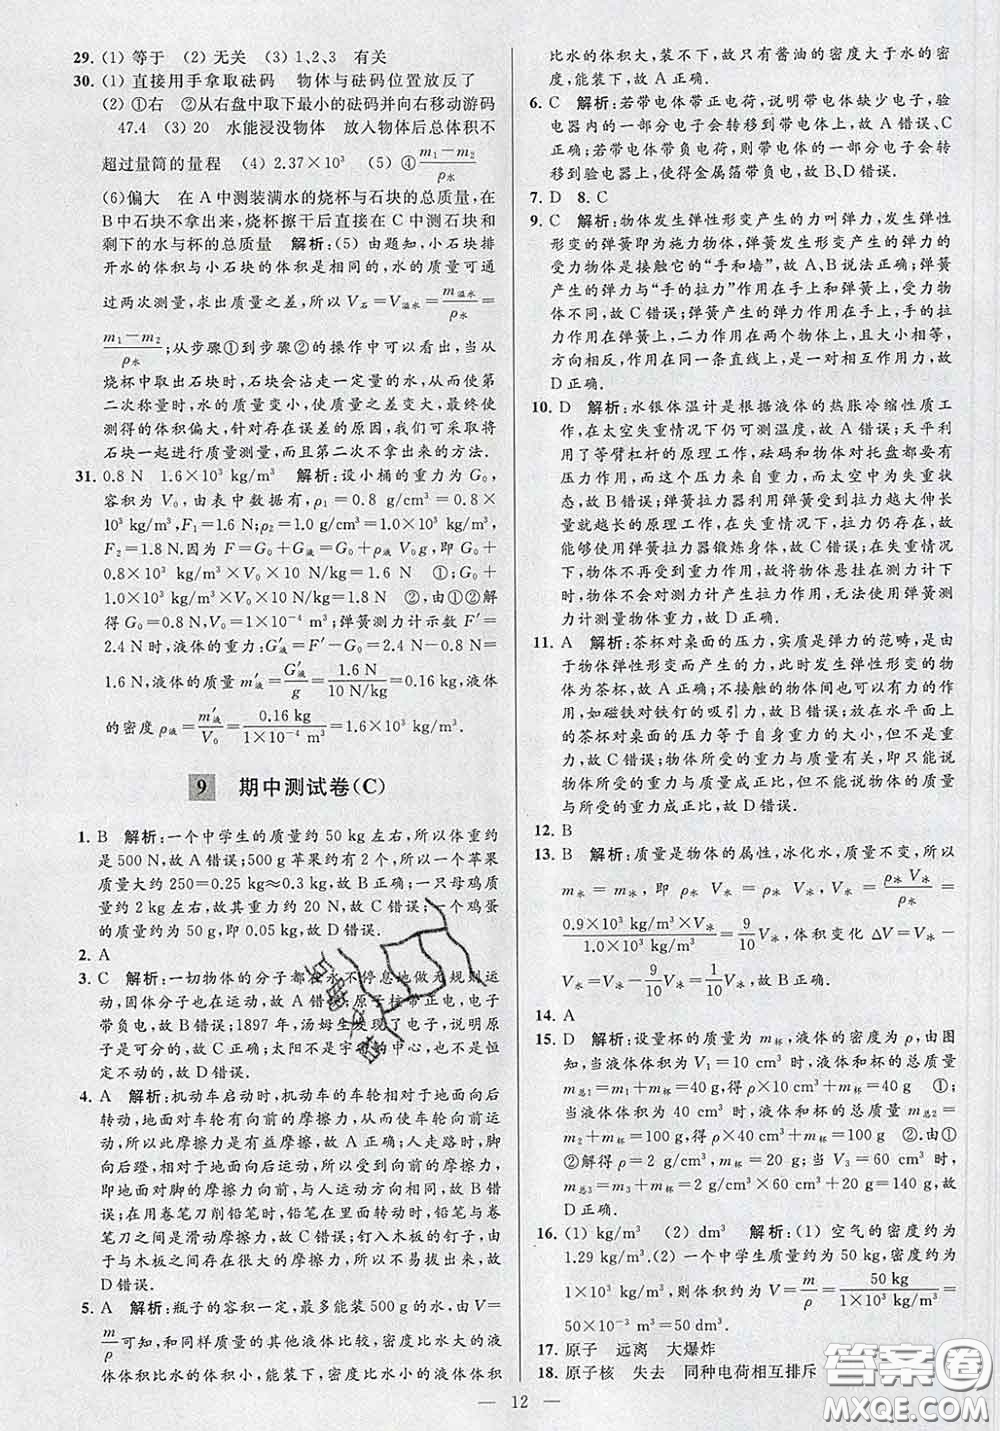 29. (1) 等于 (2) 无关 (3) 1,2,3 有关
30. (1) 直接用手拿取砝码 物体与砝码位置放反了
(2) ①右 ②从右盘中取下最小的砝码并向右移动游码
47.4 (3) 20 水能浸没物体 放入物体后总体积不
超过量筒的量程 (4) 2.37×10³ (5) ④ (m₁−m₂)/ρ水
(6)偏大 在 A 中测装满水的烧杯与石块的总质量,在
B 中石块不拿出来,烧杯擦干后直接在 C 中测石块和
剩下的水与杯的总质量 解析:(5) 由题知,小石块排
开水的体积与小石块的体积是相同的,水的质量可通
过两次测量,求出质量之差,所以 V石=V溢水=m溢水/ρ水=
(m₁−m₂)/ρ水;从步骤①到步骤②的操作中可以看出,当从
烧杯中取出石块时,石块会沾走一定量的水,从而使第
二次称量时,水的质量变小,使质量之差变大,最终使
测得的体积偏大,针对存在误差的原因,我们可采取将
石块一起进行质量测量,而且第二次不拿出来的方法.
31. 0.8 N 1.6×10³ kg/m³ 解析:设小桶的重力为 G₀,
容积为 V₀,由表中数据有,ρ₁=0.8 g/cm³=0.8×
10³ kg/m³,F₁=1.6 N;ρ₂=1.0 g/cm³=1.0×10³ kg/m³,
F₂=1.8 N.因为 F=G₀+G液=G₀+ρ液 V₀g,即 G₀+
0.8×10³ kg/m³×V₀×10 N/kg=1.6 N ①;G₀+
1.0×10³ kg/m³×V₀×10 N/kg=1.8 N ②,由①②解
得 G₀=0.8 N,V₀=1×10⁻⁴ m³;弹簧测力计示数 F′=
2.4 N时,液体的重力:G′液=F′−G₀=2.4 N−0.8 N=
1.6 N,液体的质量 m′液=G′液/g=1.6 N/10 N/kg=0.16 kg,液体
的密度 ρ液=m′液/V₀=0.16 kg/1×10⁻⁴ m³=1.6×10³ kg/m³.
9 期中测试卷(C)
1. B 解析:一个中学生的质量约 50 kg 左右,所以体重约
是 500 N,故 A 错误;500 g 苹果约有 2 个,所以一个苹果
质量大约 250=0.25 kg≈0.3 kg,故 B 正确;一只母鸡质
量大约 2 kg 左右,故其重力约 20 N,故 C 错误;一个鸡蛋
的质量约为 50 g,即 0.05 kg,故 D 错误.
2. A
3. C 解析:一切物体的分子都在永不停息地做无规则运
动,固体分子也在运动,故 A 错误;原子核带正电,电子
带负电,故 B 错误;1897 年,汤姆生发现了电子,说明原
子是可分的,故 C 正确;太阳不是宇宙的中心,也不是恒
定不动的,故 D 错误.
4. A 解析:机动车启动时,机动车的车轮相对于地面向后
转动,地面对车轮有向前的摩擦力,从而使车轮向前运
动,所以此摩擦力是有益摩擦,故 A 正确;人走路时,脚
向后蹬,相对于地面向后运动,所以受到向前的摩擦力,
即地面对脚的摩擦力向前,与人运动方向相同,故 B 错
误;在用卷笔刀削铅笔时,铅笔在卷笔刀里转动,铅笔与卷
笔刀之间是滑动摩擦力,故 C 错误;钉入木板的钉子,由
于与木板之间存在很大的摩擦力,所以不易拔出来,故
D 错误.
5. A 解析:瓶子的容积一定,最多能装 500 g 的水,由 V=
m/ρ可知,和同样质量的其他液体比较,密度比水大的液体
体积比水小,能装下,密度比水小的液体体积
比水的体积大,装不下,故只有酱油的密度大于水的密
度,能装下,故 A 正确.
6. C 解析:若带电体带正电荷,说明带电体缺少电子,验
电器内的一部分电子会转移到带电体上,故 A 错误、C
正确;若带电体带负电荷,则带电体的一部分电子会转
移到验电器上,使得金属箔带负电,故 B、D 错误.
7. D 8. C
9. C 解析:物体发生弹性形变产生的力叫弹力,发生弹性
形变的弹簧即为施力物体,弹簧发生形变产生的弹力的
受力物体是接触它的“手和墙”,故 A、B 说法正确;弹簧
产生的弹力与“手的拉力”作用在手上和弹簧上,受力物
体不同,故 C 错误;弹簧产生的弹力作用在手上,手的拉
力作用在弹簧上,二力作用在两个物体上,且大小相等,
方向相反,作用在同一条直线上,是一对相互作用力,故
D 正确.
10. D 解析:水银体温计是根据液体的热胀冷缩性质工
作,在太空失重情况下仍可测温度,故 A 错误;天平利
用了等臂杠杆的原理工作,砝码和物体对托盘都要有
压力作用,而这个压力来自重力,太空中为失重状
态,故 B 错误;弹簧拉力器利用弹簧受到拉力越大伸长
量就越长的原理工作,在失重情况下,拉力仍存在,故
依然能够用弹簧拉力器锻炼身体,故 C 错误;在失重情
况下,物体不受到重力作用,故将物体悬挂在测力计下
时,不会对测力计产生拉力作用,无法使用弹簧测力
计测量物体重力,故 D 正确.
11. A 解析:茶杯对桌面的压力,实质是弹力的范畴,是由
于物体弹性形变而产生的力,此时发生弹性形变的物
体为茶杯,故 A 正确;不接触的物体间也可以有力的作
用,如磁铁对铁钉的吸引力,故 B 错误;放在水平面上
的茶杯对桌面的压力等于自身重力的大小,但不是重
力,故 C 错误;物体所受的重力与质量成正比,只能说
物体所受重力与质量成正比,不能说物体的质量与物
体所受重力成正比,故 D 错误.
12. B
13. B 解析:质量是物体的属性,冰化水,质量不变,所以
m水=m冰,即 ρ水 V水=ρ冰 V冰,V水=ρ冰 V冰/ρ水=
0.9×10³ kg/m³×V冰/1.0×10³ kg/m³=9/10 V冰,体积变化 ΔV=V冰−
V水=V冰−9/10 V冰=1/10 V冰.
14. A
15. D 解析:设量杯的质量为 m杯,液体的密度为 ρ,由图
知,当液体体积为 V₁=10 cm³ 时,液体和杯的总质量
m总1=m₁+m杯=40 g,得 ρ×10 cm³+m杯=40 g ①;
当液体体积为 V₂=40 cm³ 时,液体和杯的总质量 m总2=
m₂+m杯=100 g,得 ρ×40 cm³+m杯=100 g ②.由①
②解得 ρ=2 g/cm³,m杯=20 g;当 V₃=60 cm³ 时,
m总3=m₃+m杯=2 g/cm³×60 cm³+20 g=140 g,故
D 正确.
16. (1) kg/m³ (2) dm³ 解析:(1) 空气的密度约为
1.29 kg/m³.(2) 一个中学生质量约为 50 kg,密度约为
1×10³ kg/m³,则体积约为 V=m/ρ=50 kg/1×10³ kg/m³=
50×10⁻³ m³=50 dm³.
17. 原子 远离 大爆炸
18. 原子核 失去 同种电荷相互排斥
— 12 —
答案圈
MXQE.COM